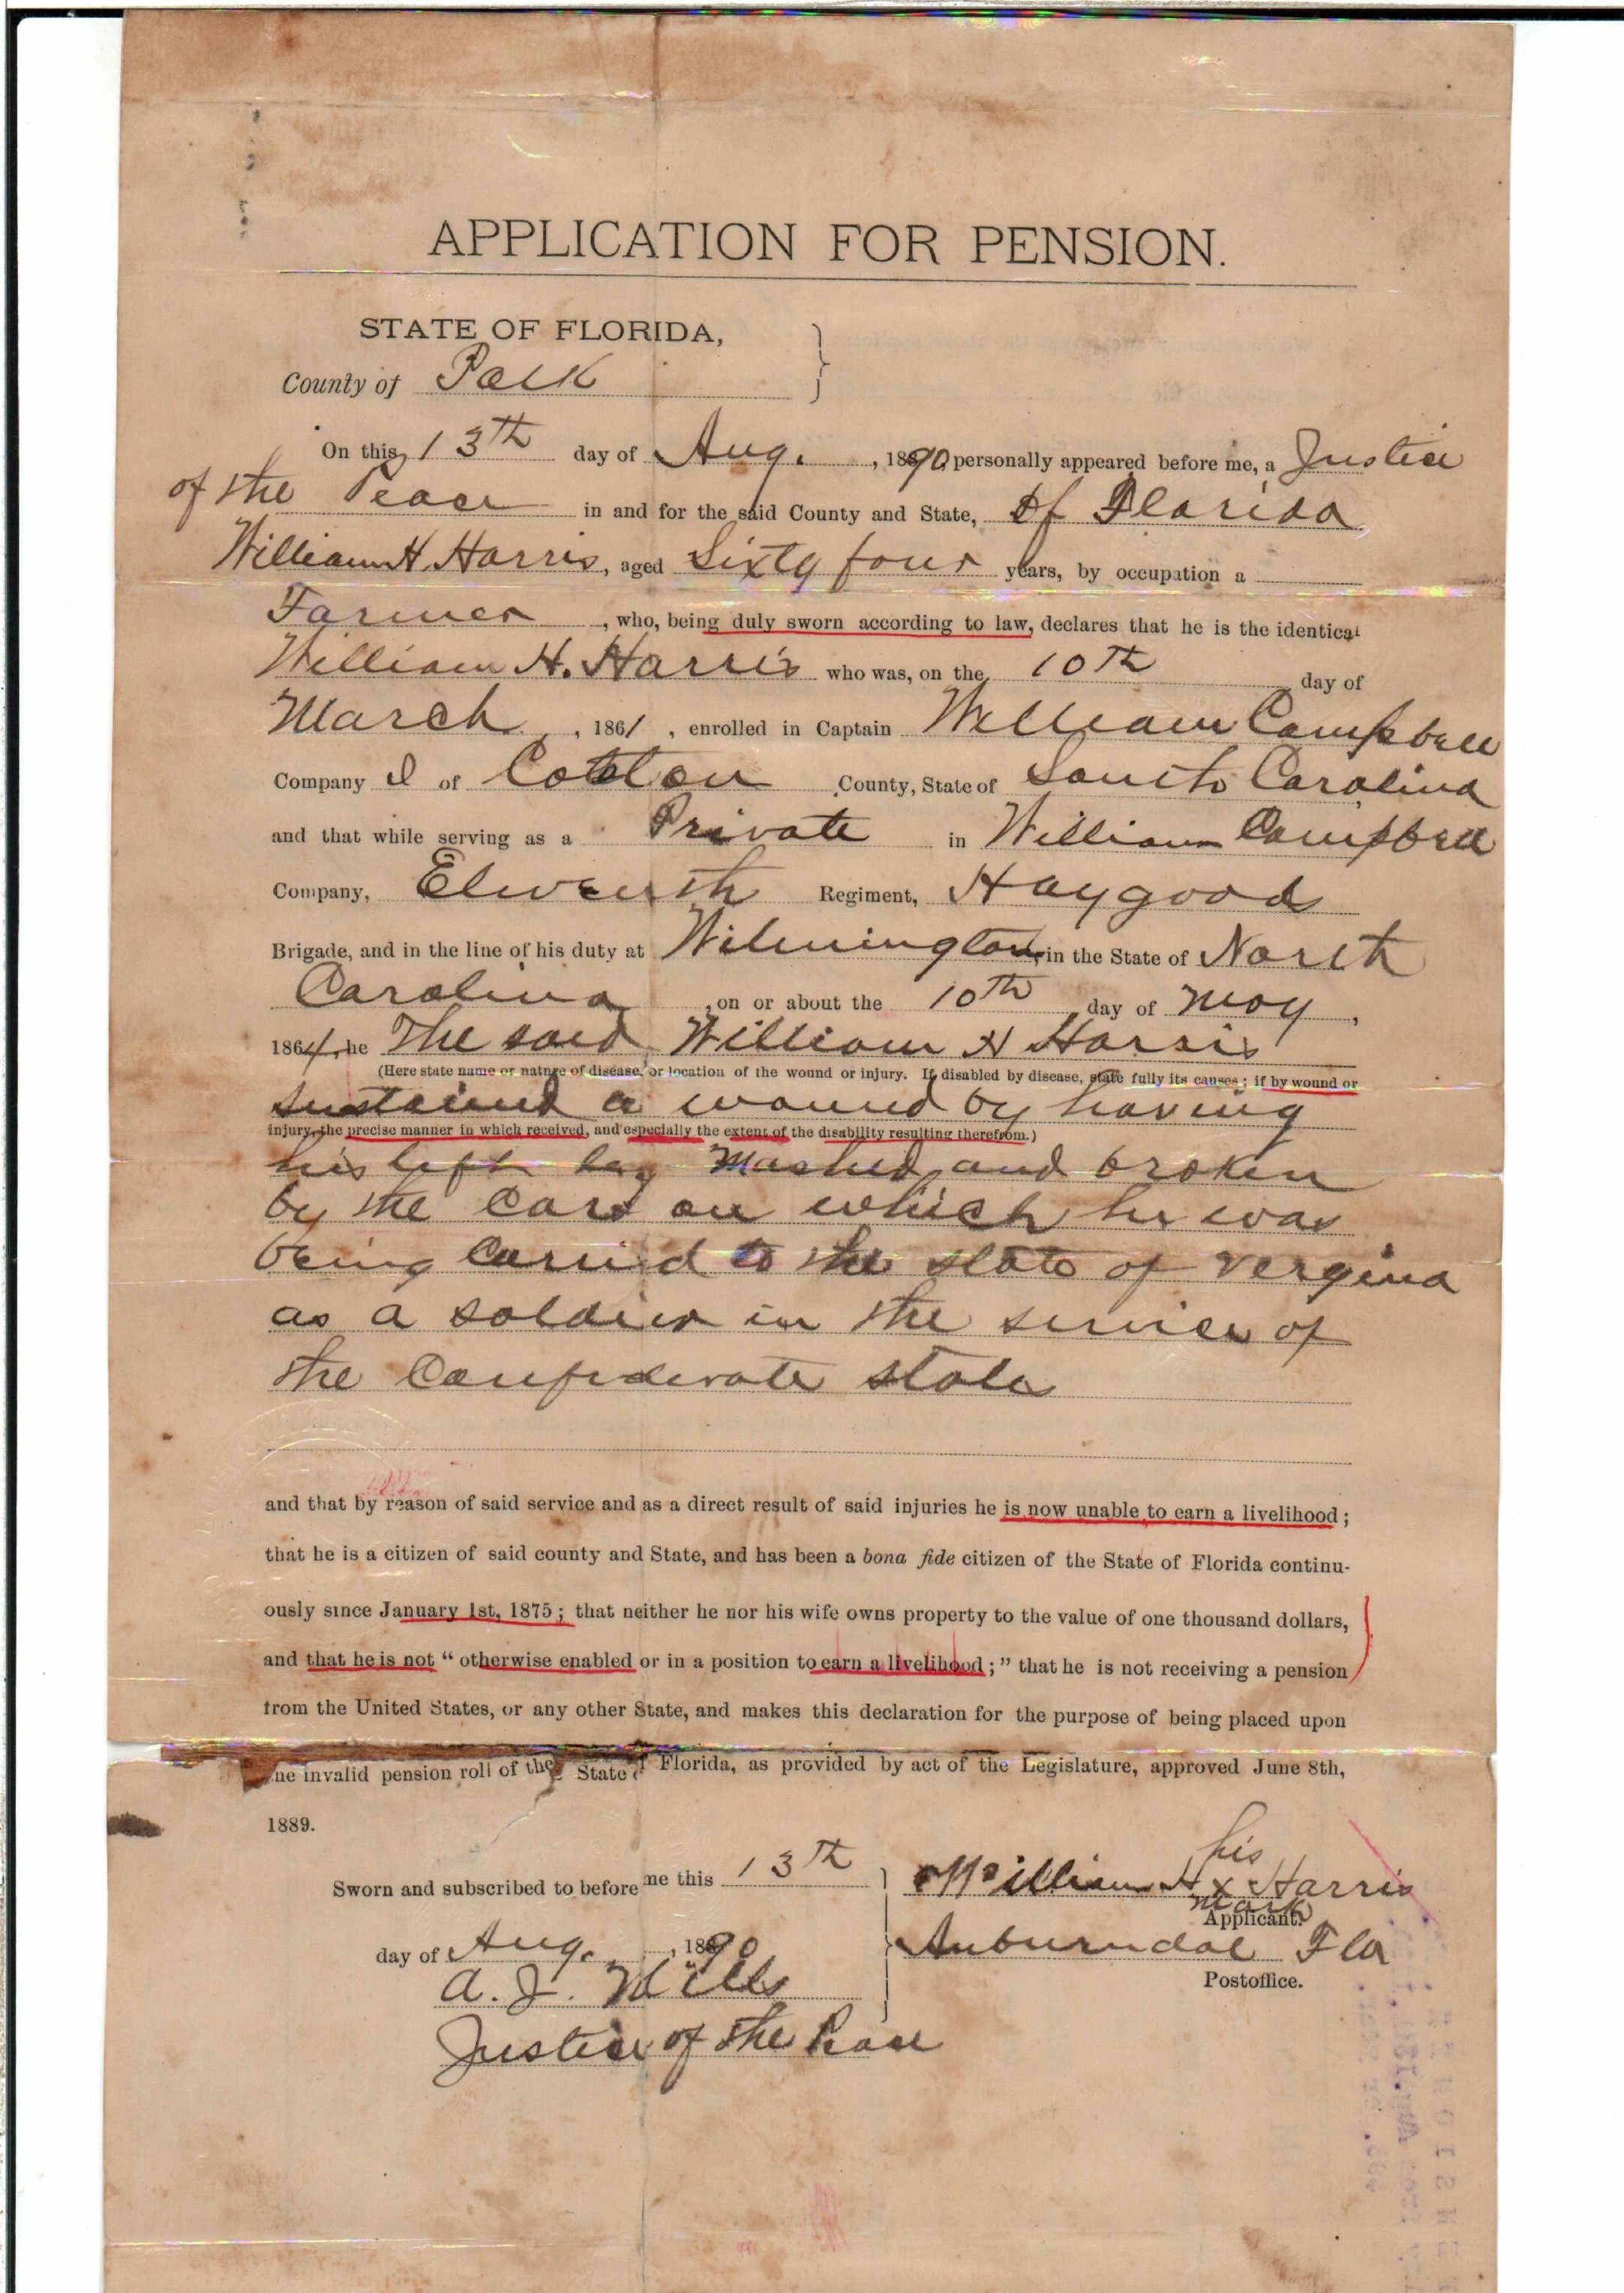 APPLICATION FOR PENSION.
STATE OF FLORIDA,
County of Polk
On this 13th day of Aug. , 1890 personally appeared before me, a Justice
of the Peace in and for the said County and State, of Florida
William H. Harris, aged Sixty four years, by occupation a
Farmer , who, being duly sworn according to law, declares that he is the identical
William H. Harris who was, on the 10th day of
March , 1861 , enrolled in Captain William Campbell
Company I of County, State of South Carolina
and that while serving as a Private in William Campbell
Company, Elventh Regiment, Haygood
Brigade, and in the line of his duty at Wilmington, in the State of North
Carolina , on or about the 10th day of May ,
1864, he The said William H Harris
(Here state name or nature of disease, or location of the wound or injury. If disabled by disease, state fully its causes; if by wound or
sustained a wound by having
injury, the precise manner in which received, and especially the extent of the disability resulting therefrom.)
his left leg mashed and broken
by the cars on which he was
being carried to the state of Vergina
as a soldier in the service of
the Confederate state
and that by reason of said service and as a direct result of said injuries he is now unable to earn a livelihood;
that he is a citizen of said county and State, and has been a bona fide citizen of the State of Florida continu-
ously since January 1st, 1875; that neither he nor his wife owns property to the value of one thousand dollars,
and that he is not "otherwise enabled or in a position to earn a livelihood;" that he is not receiving a pension
from the United States, or any other State, and makes this declaration for the purpose of being placed upon
the invalid pension roll of the State of Florida, as provided by act of the Legislature, approved June 8th,
1889.
Sworn and subscribed to before me this 13th
day of Aug. , 1890
A. J. Mills
Justice of the Peace
his
William H x Harris
mark
Applicant.
Auburndal Fla
Postoffice.